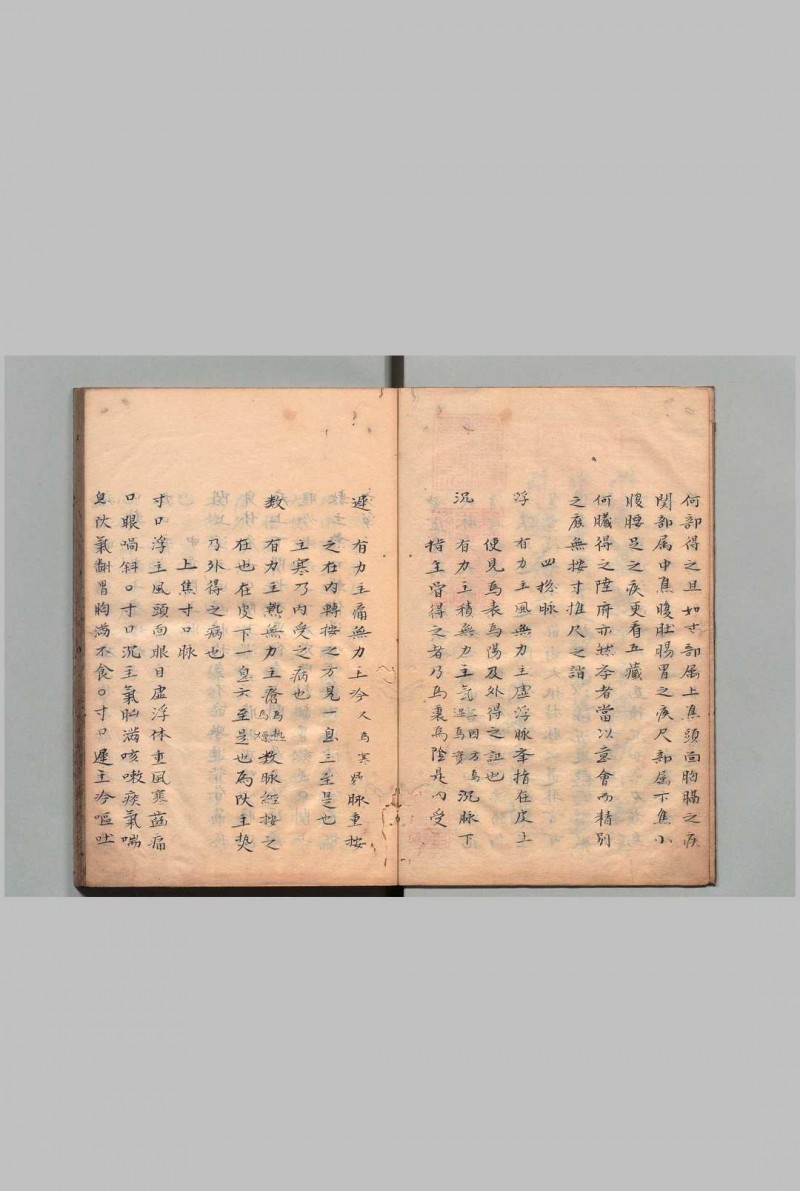 何部得之且如寸部属上焦頭面胸膈之疾
関部属中焦腹肚腸胃之疾尺部属下焦小
腹腰足之疾更看五藏
何臓得之陸府亦然斈者當以意會而精別
之庶無按寸推尺之誚
四揔脉
浮 有力主風無力主虚浮脉斈指在皮上
便見為表為陽及外得之証也
沉 有力主積無力主気 沉脉下
指主甞得之者乃為裏為陰是内受
遲 有力主痛無力主冷 脉重按
之在内轉按之方見一息三至是也
主寒乃内受之病也
数 有力主熱無力主瘡 数脉經按之
在也在皮下一息六至是也為伏主熱
乃外得之病也
上焦寸口脉
寸口浮主風頭面眼目虚浮体重風寒齒痛
口眼喎斜○寸口沉主氣胸滿咳嗽痰氣喘
息伏氣翻胃胸滿不食○寸口遲主冷嘔吐